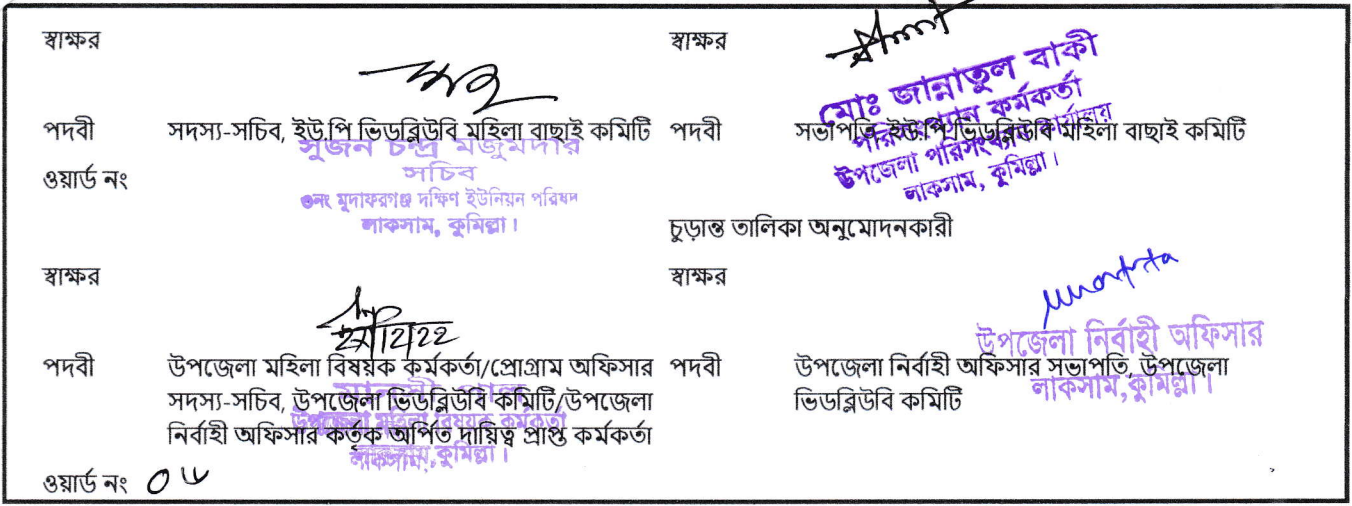 স্বাক্ষর
স্বাক্ষর
পদবী সদস্য-সচিব, ইউ.পি ভিডব্লিউবি মহিলা বাছাই কমিটি
সুজন চন্দ্র মজুমদার
সচিব
৩নং মুদাফরগঞ্জ দক্ষিণ ইউনিয়ন পরিষদ
লাকসাম, কুমিল্লা।
ওয়ার্ড নং
পদবী সভাপতি, ইউ.পি ভিডব্লিউবি মহিলা বাছাই কমিটি
মোঃ জান্নাতুল বাকী
পরিসংখ্যান কর্মকর্তা
উপজেলা পরিসংখ্যান কার্যালয়
লাকসাম, কুমিল্লা।
চুড়ান্ত তালিকা অনুমোদনকারী
স্বাক্ষর
স্বাক্ষর
পদবী উপজেলা মহিলা বিষয়ক কর্মকর্তা/প্রোগ্রাম অফিসার
সদস্য-সচিব, উপজেলা ভিডব্লিউবি কমিটি/উপজেলা
নির্বাহী অফিসার কর্তৃক অর্পিত দায়িত্ব প্রাপ্ত কর্মকর্তা
উপজেলা মহিলা বিষয়ক কর্মকর্তা
লাকসাম, কুমিল্লা।
পদবী উপজেলা নির্বাহী অফিসার সভাপতি, উপজেলা
ভিডব্লিউবি কমিটি
উপজেলা নির্বাহী অফিসার
লাকসাম, কুমিল্লা।
ওয়ার্ড নং